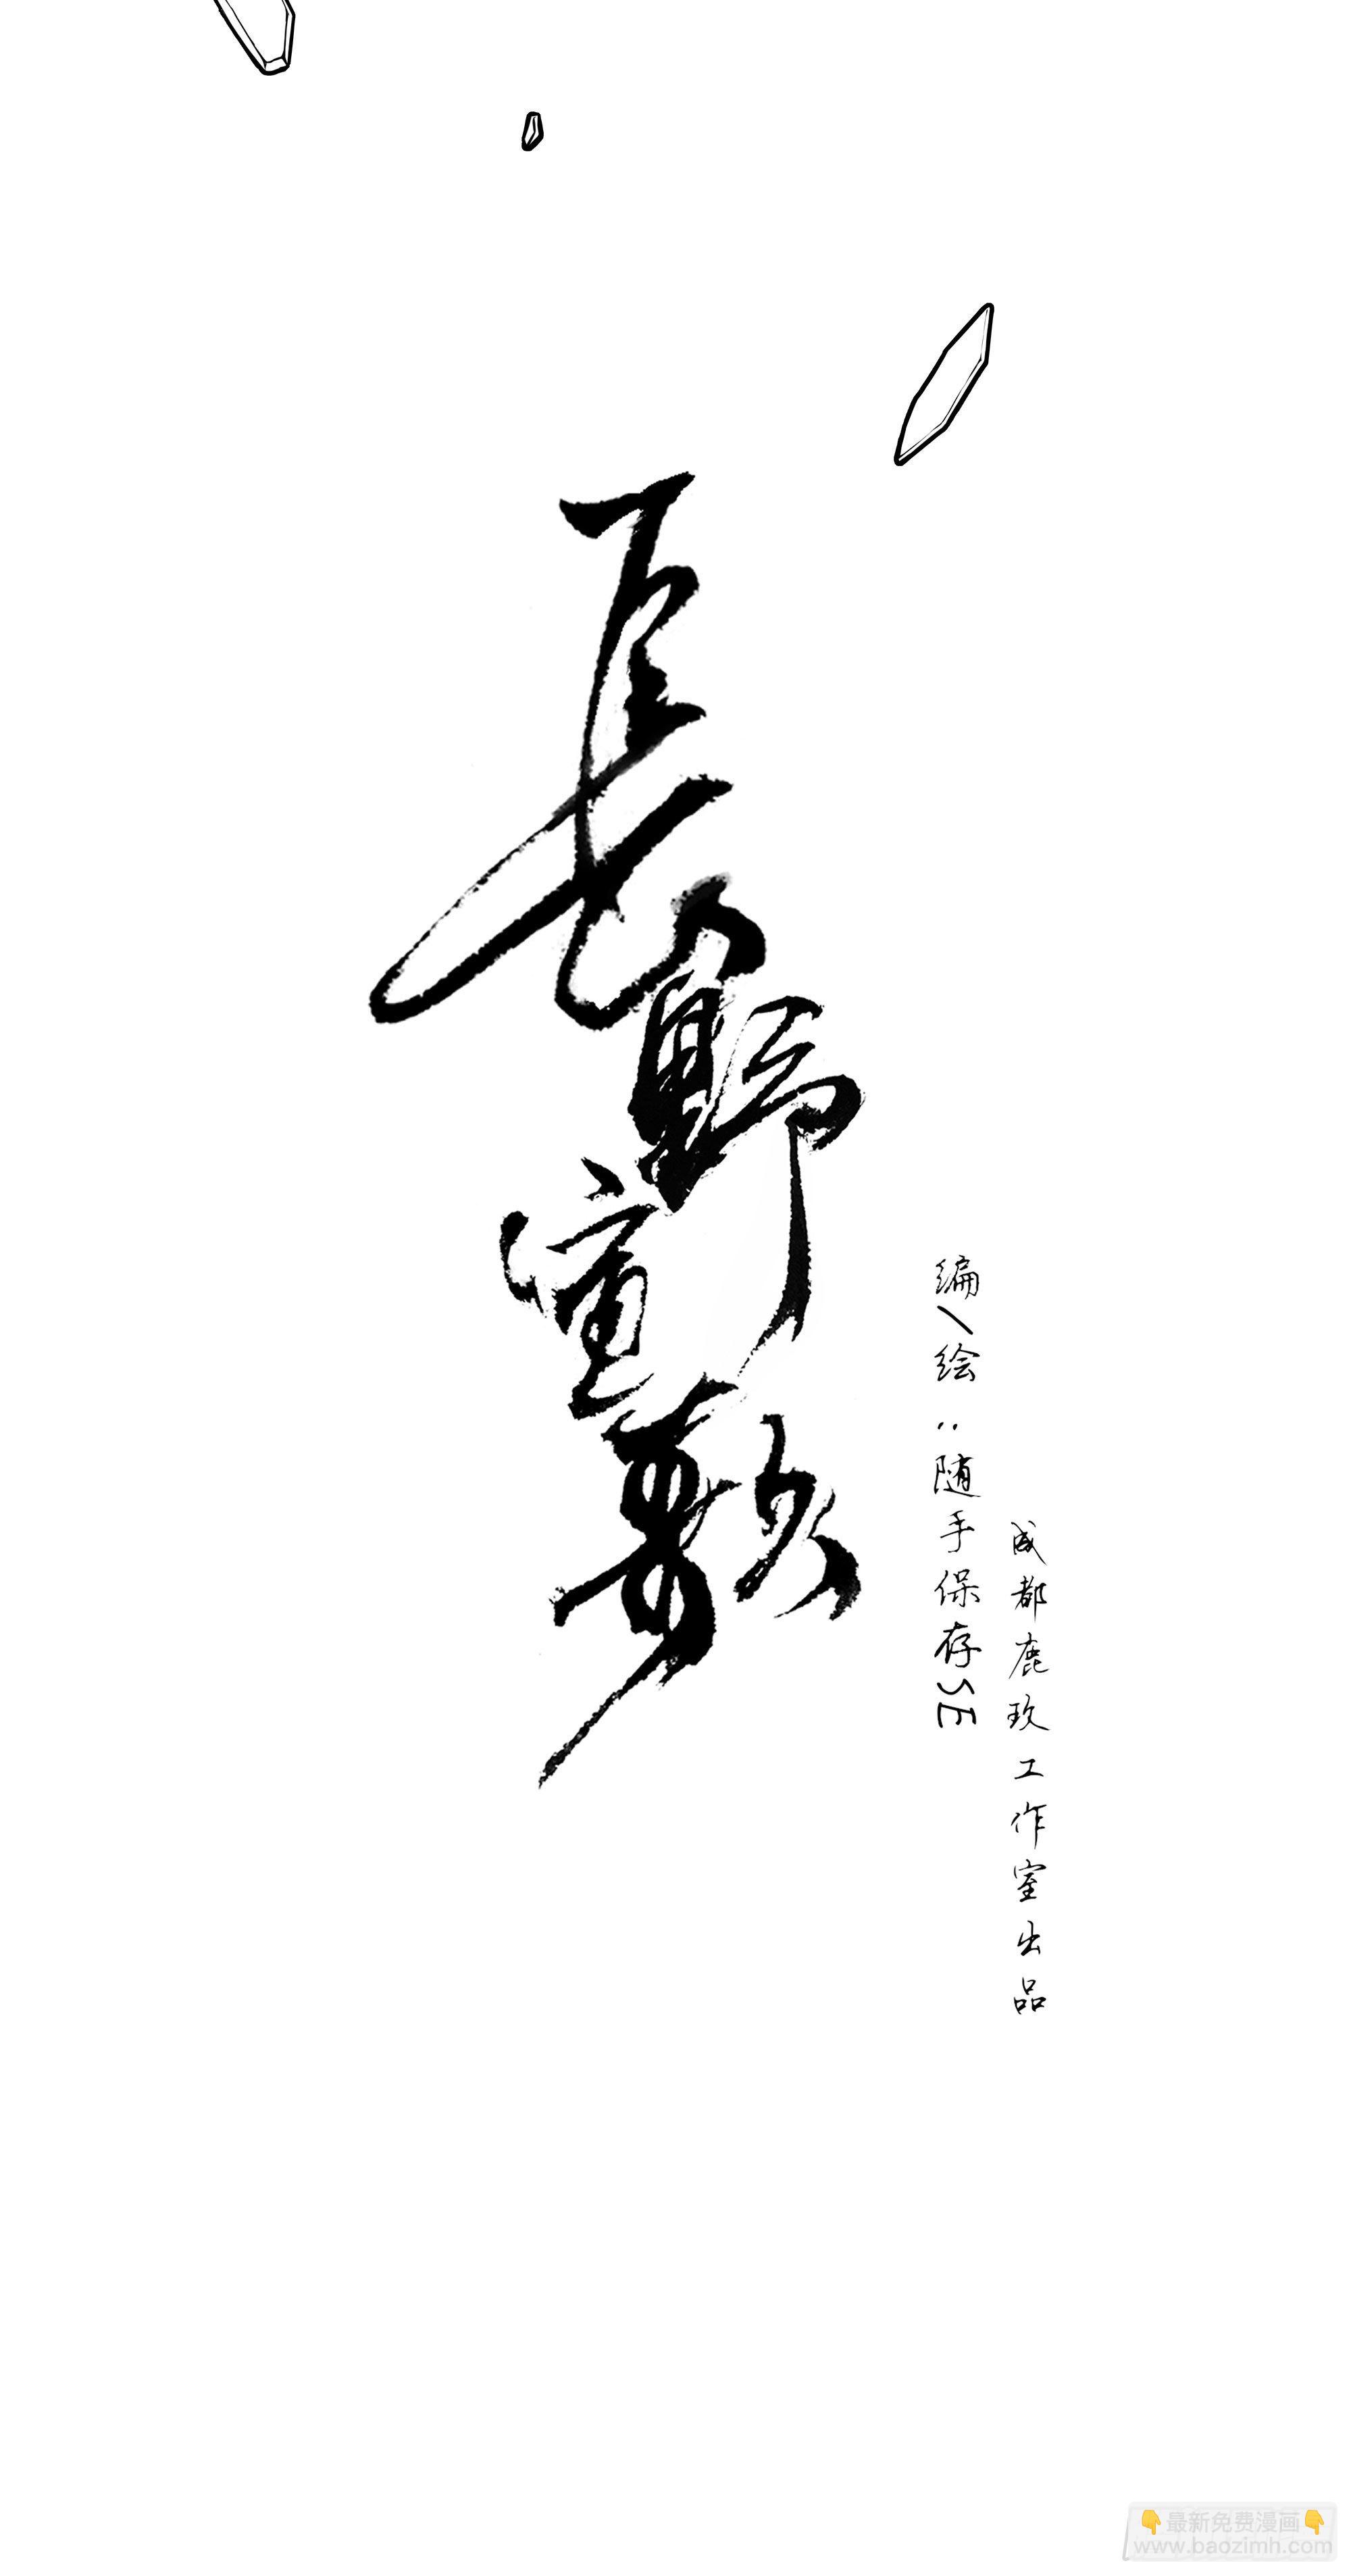 長野宣敷
编/绘：随手保存SE
成都鹿玖工作室出品
最新免费漫画
www.baozimh.com